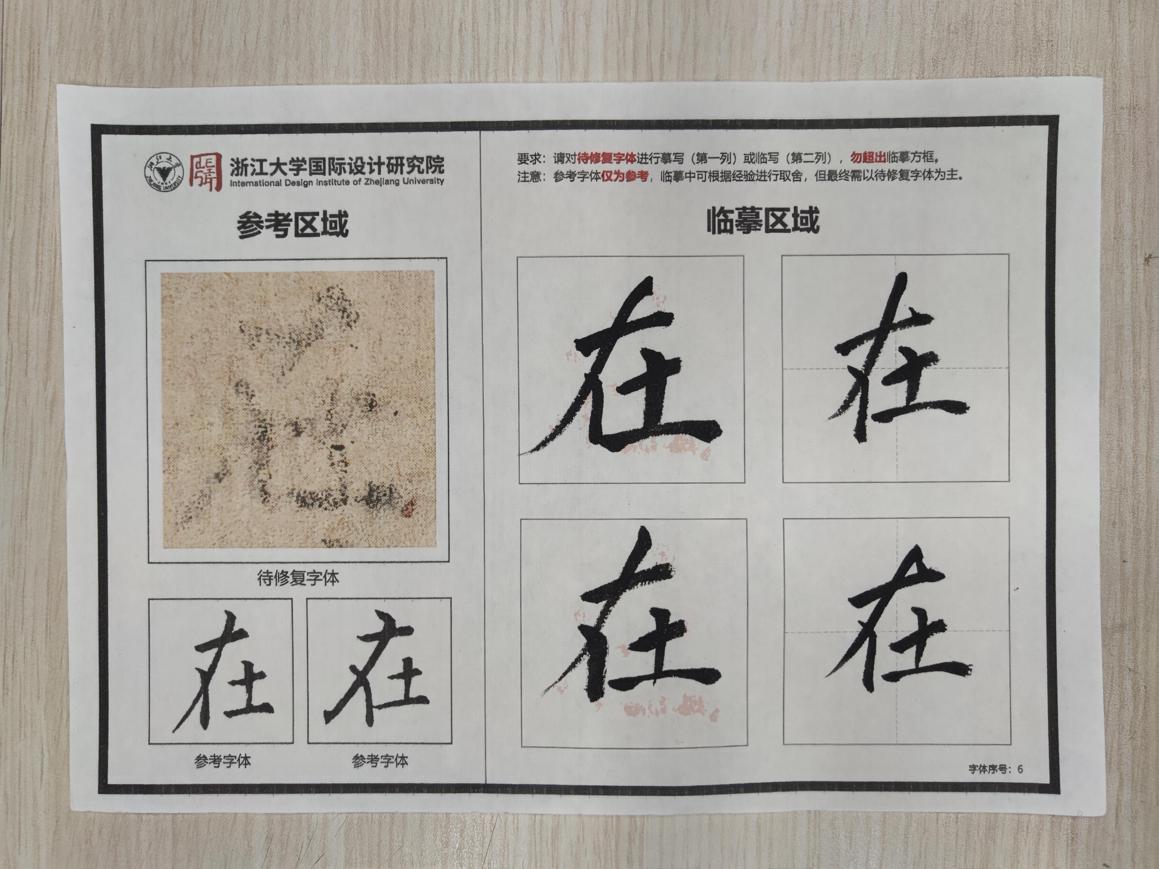 浙江大学国际设计研究院
International Design Institute of Zhejiang University
参考区域
待修复字体
在 在
参考字体 参考字体
要求：请对待修复字体进行摹写（第一列）或临写（第二列），勿超出临摹方框。
注意：参考字体仅为参考，临摹中可根据经验进行取舍，但最终需以待修复字体为主。
临摹区域
在 在
在 在
字体序号：6